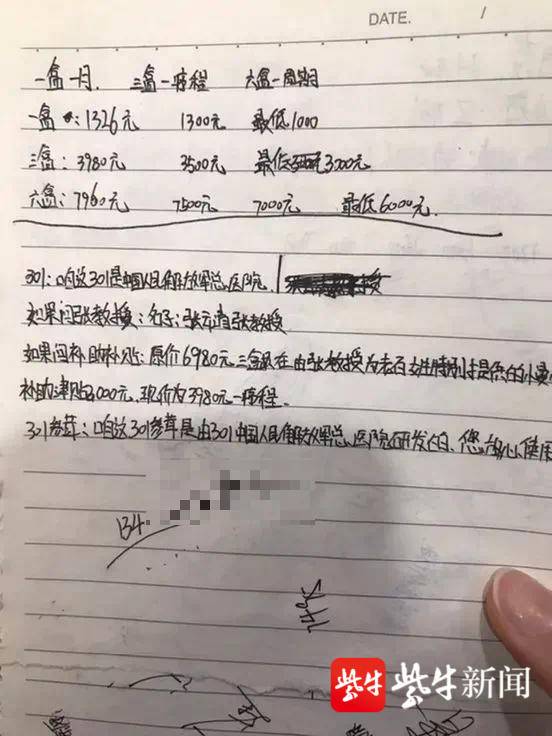 DATE. /
一盒一月. 三盒一疗程 六盒一周期
一盒:1326元 1300元 最低1000
三盒:3980元 3500元 最低3000元
六盒:7960元 7500元 7000元 最低6000元.
301:咱这301是中国人民解放军总医院. 授
如果问张教授:名字:张 张教授
如果问补助补贴:原价6980元三盒现在由张教授为老百姓特别提供的
补助津贴3000元,现价为3980元一疗程.
301参茸:咱这301参茸是由301中国人民解放军总医院研发的、您放心使用
134
紫牛 紫牛新闻